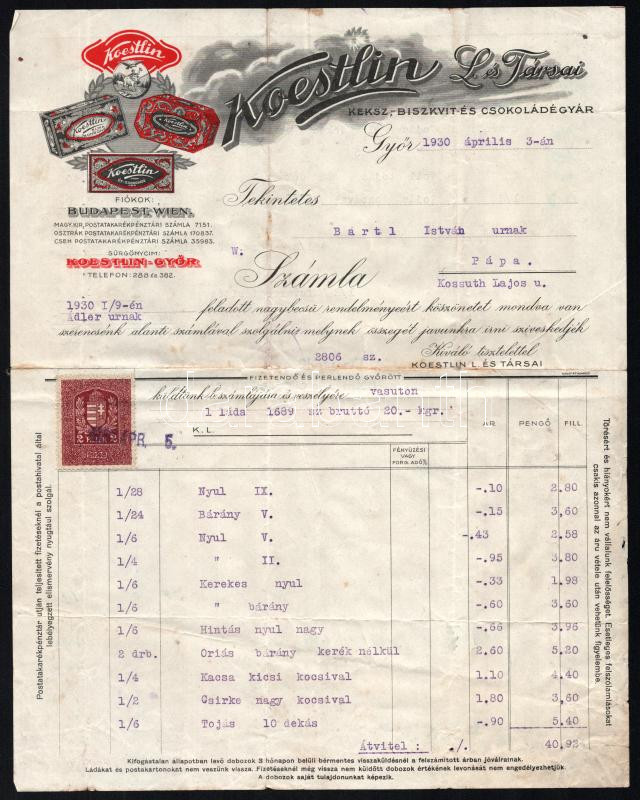 Koestlin
Koestlin L. és Társai
KEKSZ-, BISZKVIT-ÉS CSOKOLÁDÉGYÁR
Győr 1930 április 3-án
Koestlin
Koestlin
Koestlin
FIÓKOK:
BUDAPEST, WIEN.
MAGY. KIR. POSTATAKARÉKPÉNZTÁRI SZÁMLA 7151.
OSZTRÁK POSTATAKARÉKPÉNZTÁRI SZÁMLA 170837.
CSEH POSTATAKARÉKPÉNZTÁRI SZÁMLA 35983.
SÜRGÖNYCIM:
KOESTLIN-GYŐR
TELEFON: 288 és 382.
Tekintetes
Bartl István urnak
W: Pápa.
Számla
Kossuth Lajos u.
1930 I/9-én feladott nagybecsü rendelményeért köszönetet mondva van
Adler urnak
szerencsénk alanti számlával szolgálni, melynek összegét javunkra irni sziveskedjék
2806 sz. Kiváló tisztelettel
KOESTLIN L. ÉS TÁRSAI
FIZETENDŐ ÉS PERLENDŐ GYŐRÖTT
küldtünk b. számlájára és veszélyére vasuton
1 láda 1689 sz bruttó 20.- kgr.
K. L.
FÉNYÜZÉSI VAGY FORG. ADÓ %
ÁR PENGŐ FILL.
APR. 5.
1/28 Nyul IX. -.10 2.80
1/24 Bárány V. -.15 3.60
1/6 Nyul V. -.43 2.58
1/4 " II. -.95 3.80
1/6 Kerekes nyul -.33 1.98
1/6 " bárány -.60 3.60
1/6 Hintás nyul nagy -.66 3.96
2 drb. Oriás bárány kerék nélkül 2.60 5.20
1/4 Kacsa kicsi kocsival 1.10 4.40
1/2 Csirke nagy kocsival 1.80 3.60
1/6 Tojás 10 dekás -.90 5.40
Átvitel : ./. 40.92
Postatakarékpénztár utján teljesitett fizetéseknél a postahivatal által
lebélyegzett elismervény nyugtául szolgál.
Törésért és hiányokért nem vállalunk felelősséget. Esetleges felszólamlásokat
csakis azonnal az áru vétele után vehetünk figyelembe.
Kifogástalan állapotban levő dobozok 3 hónapon belüli bérmentes visszaküldésnél a felszámitott árban jóváiratnak.
Ládákat és postakartonokat nem veszünk vissza. Fizetéseknél még vissza nem küldött dobozok értékének levonását nem engedélyezhetjük.
A dobozok saját tulajdonunkat képezik.